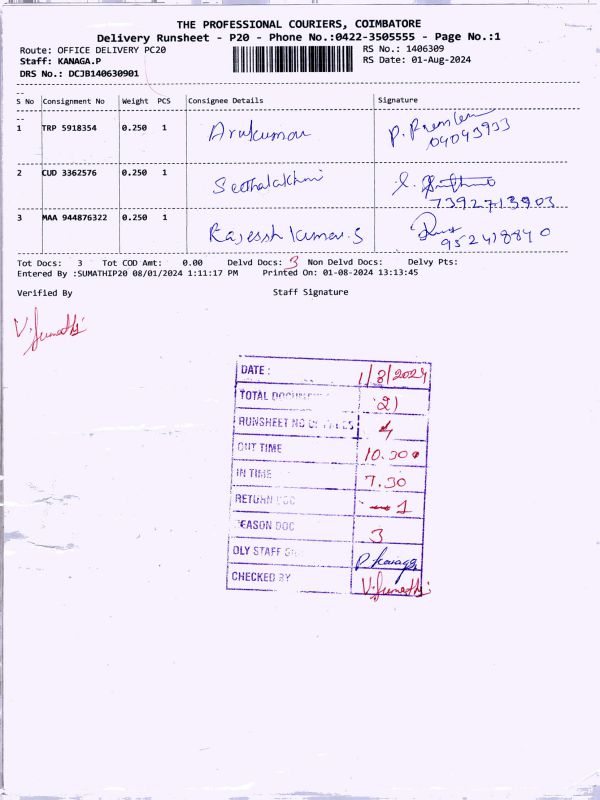 THE PROFESSIONAL COURIERS, COIMBATORE
Delivery Runsheet - P20 - Phone No.:0422-3505555 - Page No.:1
Route: OFFICE DELIVERY PC20 RS No.: 1406309
Staff: KANAGA.P RS Date: 01-Aug-2024
DRS No.: DCJB140630901
S No Consignment No Weight PCS Consignee Details Signature
1 TRP 5918354 0.250 1 Arulkumar
2 CUD 3362576 0.250 1 Seethalakshmi
7392713903
3 MAA 944876322 0.250 1 Rajessh kumar.S
Tot Docs: 3 Tot COD Amt: 0.00 Delvd Docs: 3 Non Delvd Docs: Delvy Pts:
Entered By :SUMATHIP20 08/01/2024 1:11:17 PM Printed On: 01-08-2024 13:13:45
Verified By Staff Signature
V.Sumathi
DATE : 1/8/2024
TOTAL DOCUMENT
RUNSHEET NO OF 4
OUT TIME 10.30
IN TIME 7.30
RETURN DOC 1
REASON DOC 3
DLY STAFF P.kanaga
CHECKED BY V.Sumathi